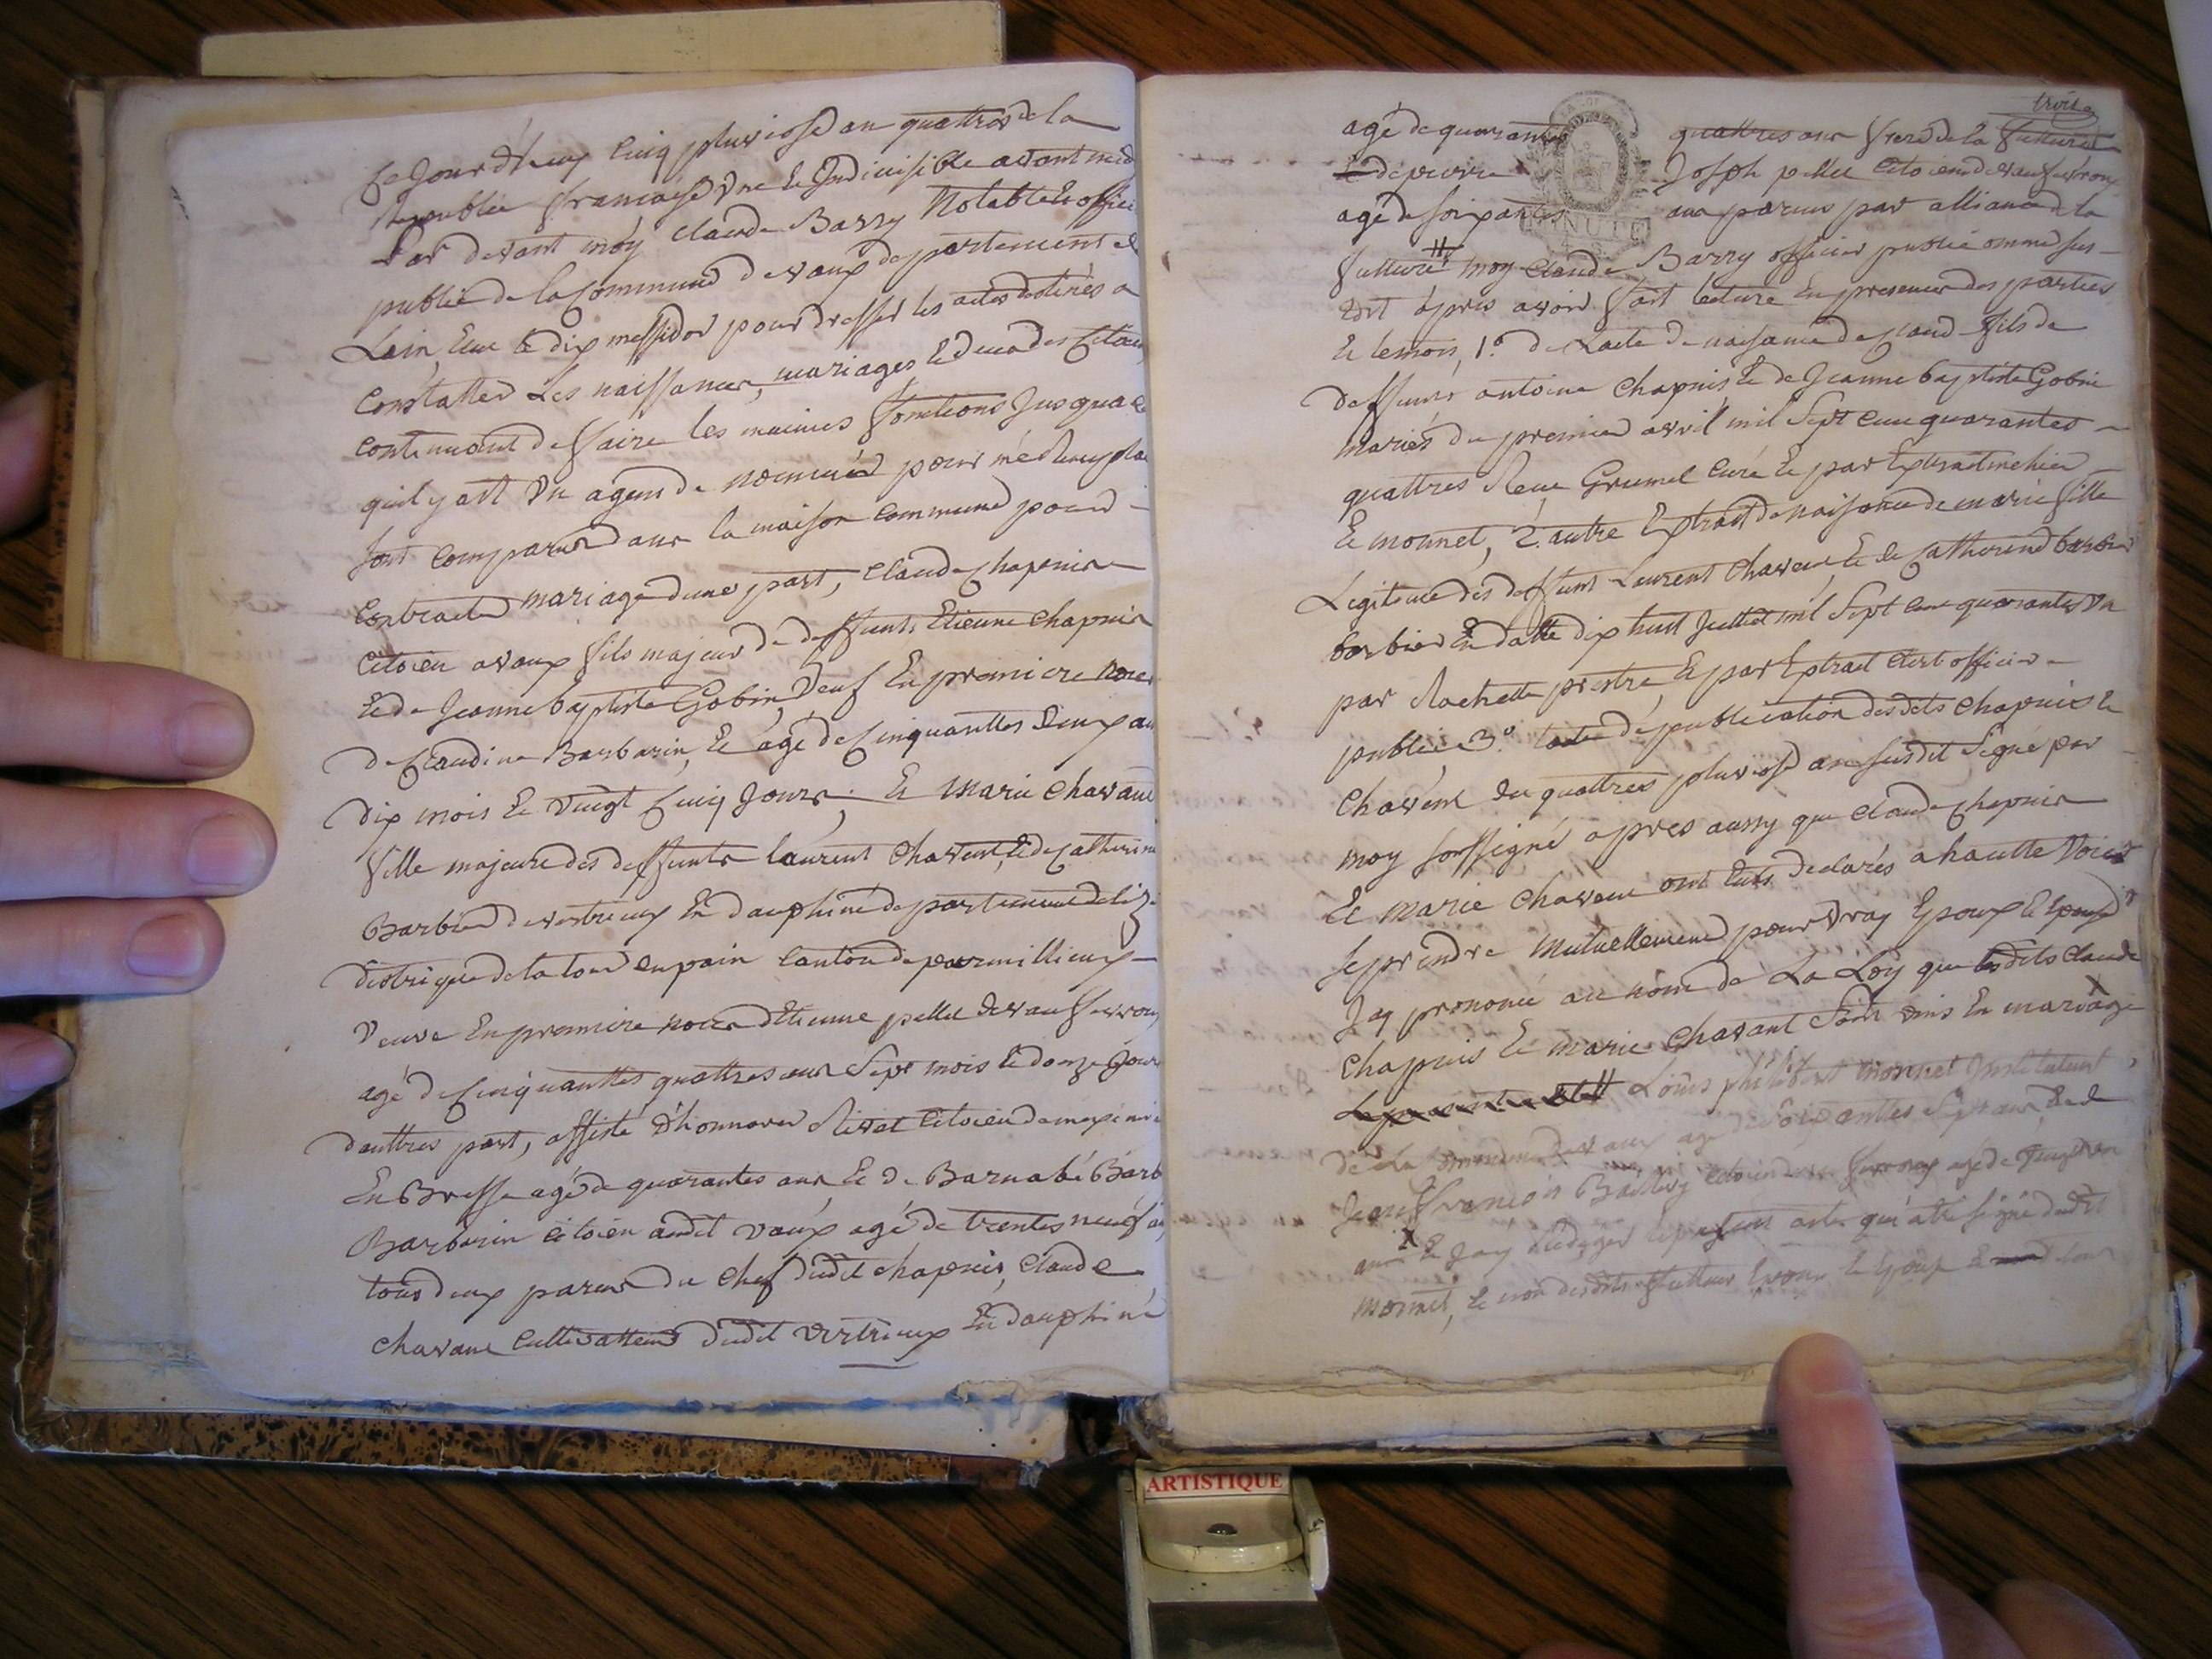 Ce Jourd'huy Cinq pluviose an quattres de la
Republic francaise une Et Indivisible avant midi
Par devant moy Claude Barry Notable Et offici
public de la Commune de vaux departement de
Lain, Elue le dix messidor pour dresser les actes destinés a
Constatter Les naissances, mariages Et deces des Citoiens
continuant de faire les maimes fonctions Jusqua ce
quil y ait Un agent de nommé pour me Remplac
sont comparus dans la maison commune pour
Contracter mariage dune part, Claude Chapuis
Citoien a vaux fils majeur de deffunts Etienne Chapuis
Et de Jeanne baptiste Gobin, Veuf En premiere noces
de Claudine Barbarin, Et agé de Cinquanttes Deux ans
dix mois Et vingt Cinq Jours; Et Marie Chavant
fille majeure des deffunts laurent Chavent, Et de Catherine
Barbier de vertrieux En dauphiné departement de lize
distrique de la tour du pain Canton de parmillieux
Veuve En premiere noces dEtienne pellet de vaux fevroux
agé de Cinquanttes quattres ans Sept mois Et douze Jours
dauttres part, assisté d'honnoré Rivet Citoien de meximie
En Bresse agé de quarantes ans Et de Barnabé Barb
Barbarin Citoien audit vaux agé de trentes neuf ans
tous deux parens du Chef dudit chapuis, Claude
Chavant Cultivatteur dudit vertrieux En dauphiné
trois
agé de quarantes quattres ans frere de la futture
Et de pierre Joseph pellet Citoien de vaux fevroux
agé de soixantes ans parens par alliance de la
futture H moy Claude Barry officier public omme sus
dit apres avoir fait lecture En presence des parties
Et temoins, 1.o de Lacte de naissance de Claud fils de
deffunts antoine Chapuis Et de Jeanne baptiste Gobin
mariés du premier avril mil Sept Cent quarantes
quattres Grumel Curé Et par Extrait
Et monnet, 2. autre Extrait de naissance de marie fille
Legitime des deffunts Laurent Chavent Et de Catherine barbier
barbier En datte dix huit Juillet mil Sept Cent quarantes Un
par Rachette prestre, Et par Extrait officier
public, 3.o lacte de publication desdits Chapuis Et
Chavent du quattres pluviose an susdit Signé par
moy soussigné apres aussy que Claude Chapuis
Et marie Chavent ont declarés a hautte Voix
se prendre Mutuellement pour vray Epoux Et Epouse
Jay prononcé au nôm de La Loy que lesdits Claude
Chapuis Et marie Chavant Sont unis En mariage
H Loüis philibert monnet Instituteur
de la Commune de vaux agé de soixanttes Sept ans Et de
Jean francois Barry Citoien de fevroux agé de
ans X Et Jay Rediger le present acte qui a été signé dudit
monnet, Et non desdits futturs Epoux Et Epouse